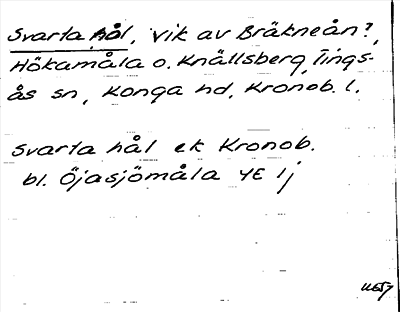 Svarta hål, vik av Bräkneån?,
Hökamåla o. Knällsberg, Tings-
ås sn, Konga hd, Kronob. l.
Svarta hål ek Kronob.
bl. Öjasjömåla 4E 1j